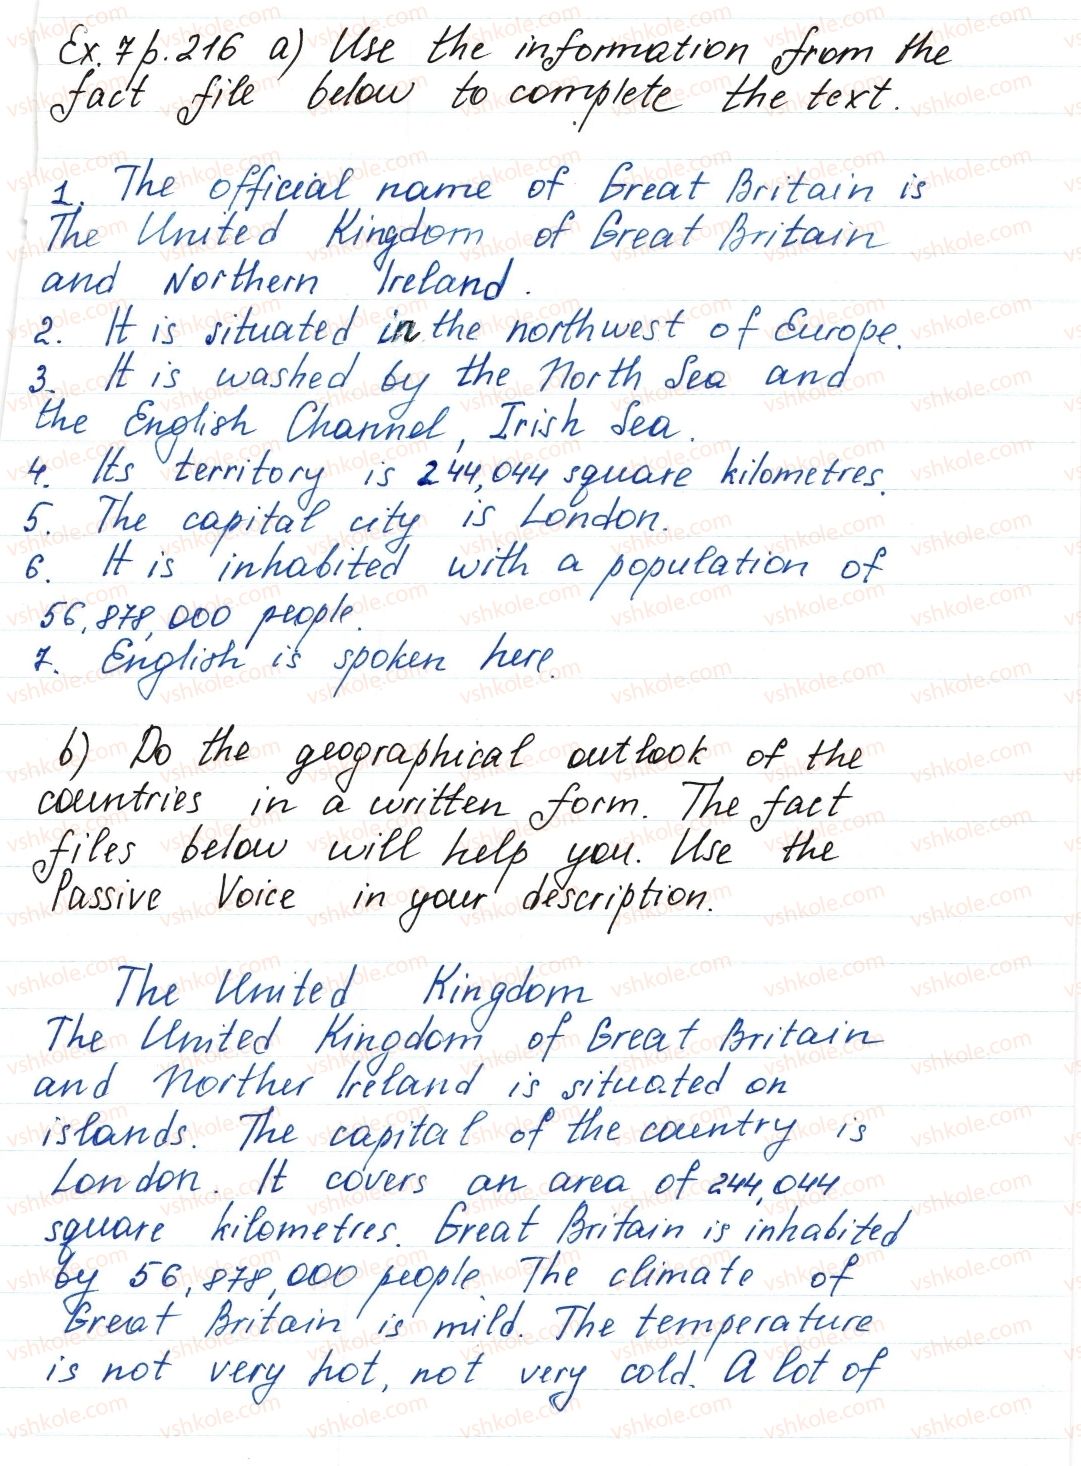 Ex. 7 p. 216 a) Use the information from the
fact file below to complete the text.
1. The official name of Great Britain is
The United Kingdom of Great Britain
and Northern Ireland.
2. It is situated in the northwest of Europe.
3. It is washed by the North Sea and
the English Channel, Irish Sea.
4. Its territory is 244,044 square kilometres.
5. The capital city is London.
6. It is inhabited with a population of
56,878,000 people.
7. English is spoken here.
b) Do the geographical outlook of the
countries in a written form. The fact
files below will help you. Use the
Passive Voice in your description.
The United Kingdom
The United Kingdom of Great Britain
and Norther Ireland is situated on
islands. The capital of the country is
London. It covers an area of 244,044
square kilometres. Great Britain is inhabited
by 56,878,000 people. The climate of
Great Britain is mild. The temperature
is not very hot, not very cold. A lot of